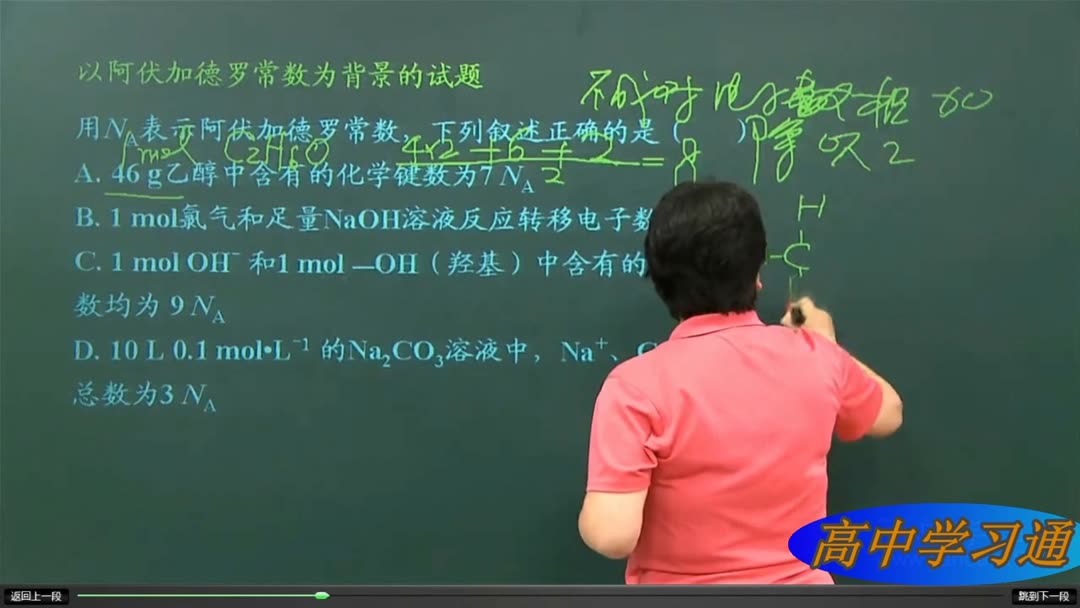 以阿伏加德罗常数为背景的试题
不成对电子数 一般
用N_A表示阿伏加德罗常数，下列叙述正确的是（ ）
1mol C2H6O
4×2+6+2
2
=8
甲拿 2
A. 46 g乙醇中含有的化学键数为7 N_A
B. 1 mol氯气和足量NaOH溶液反应转移电子数
H
C
C. 1 mol OH⁻ 和1 mol —OH（羟基）中含有的
数均为 9 N_A
D. 10 L 0.1 mol•L⁻¹ 的Na₂CO₃溶液中，Na⁺、C
总数为3 N_A
高中学习通
返回上一段
跳到下一段